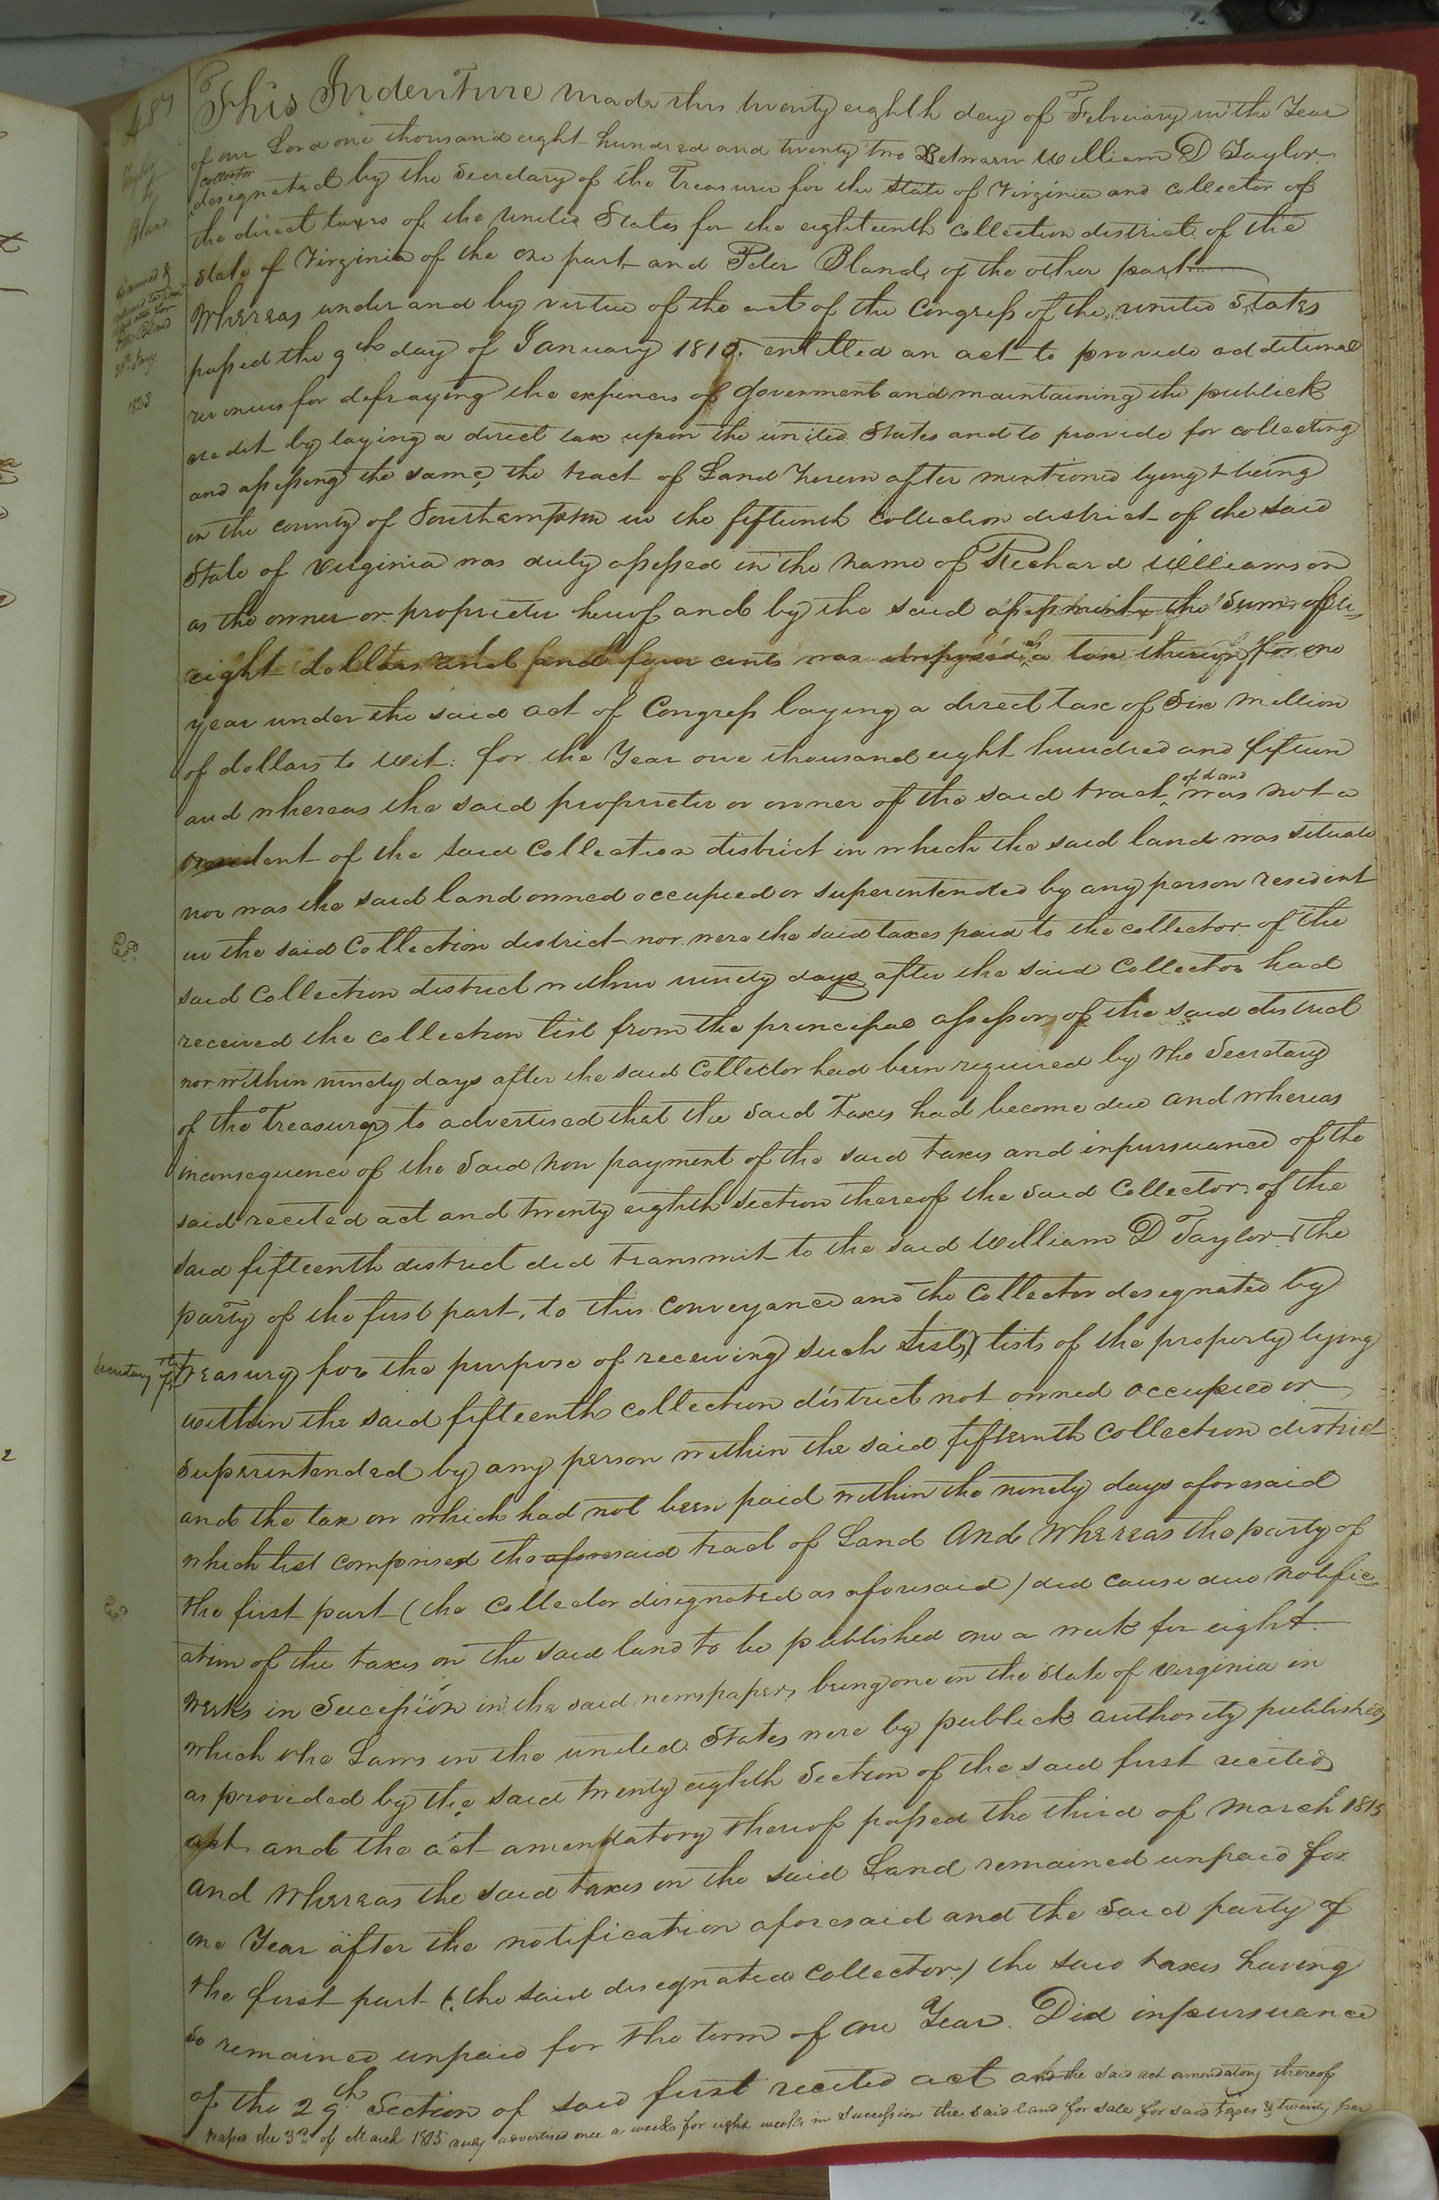 487
Taylor
to
Bland
Examined &
Peter Bland
28th Jany
1823
This Indenture made this twenty eighth day of February in the Year
of our Lord one thousand eight hundred and twenty two Between William D Taylor
collector
designated by the Secretary of the Treasurer for the State of Virginia and collector of
the direct taxes of the United States for the eighteenth collection district of the
State of Virginia of the one part and Peter Bland of the other part
Whereas under and by virtue of the act of the Congress of the united States
passed the 9th day of January 1815. entitled an act to provide additional
revenues for defraying the expences of Goverment and maintaining the publick
credit by laying a direct tax upon the united States and to provide for collecting
and assessing the same, the tract of Land herein after mentioned lying & being
in the county of Southampton in the fifteenth collection district of the said
State of Virginia was duly assessed in the name of Richard Williamson
as the owner or proprietor hereof and by the said assessment the Sum of
eight dollars and four cents was imposed as a tax thereon for one
year under the said act of Congress laying a direct tax of Six Million
of dollars to wit: for the Year one thousand eight hundred and fifteen
and whereas the said proprietor or owner of the said tract of land was not a
resident of the said Collection district in which the said land was situate
nor was the said land owned occupied or superintended by any person resident
in the said Collection district nor were the said taxes paid to the collector of the
said Collection district within ninety days after the said Collector had
received the collection list from the principal assessor of the said district
nor within ninety days after the said Collector had been required by the Secretary
of the Treasury to advertised that the said taxes had become due and whereas
inconsequence of the said non payment of the said taxes and inpursuance of the
said recited act and twenty eighth section thereof the said Collector of the
said fifteenth district did transmit to the said William D Taylor the
party of the first part, to this conveyance and the Collector designated by
Secretary of the
Treasury for the purpose of receiving such lists) lists of the property lying
within the said fifteenth collection district not owned occupied or
superintended by any person within the said fifteenth Collection district
and the tax on which had not been paid within the ninety days aforesaid
which list comprised the aforesaid tract of Land And Whereas the party of
the first part (the Collector designated as aforesaid) did cause due notific
ation of the taxes on the said land to be published one a week for eight
weeks in Sucession in the said newspapers being one in the State of Virginia in
which the Laws in the united States were by publick authority published,
as provided by the said twenty eighth Section of the said first recited
act and the act amendatory thereof passed the third of March 1815
and Whereas the said taxes on the said Land remained unpaid for
one Year after the notification aforesaid and the said party of
the first part (the said designated Collector) the said taxes having
so remained unpaid for the term of one Year. Did inpursuance
of the 29th Section of said first recited act and the said act amendatory thereof
passed the 3rd of March 1815 duly advertised once a week for eight weeks in Succession the said land for sale for said taxes & twenty per